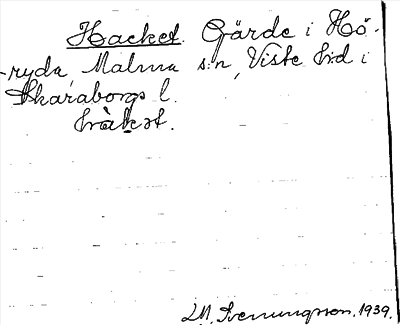 Hacket. Gärde i Hö-
-ryda, Malma s:n, Viste hrd i
Skaraborgs l.
hràkst.
LM. Svenungsson. 1939.